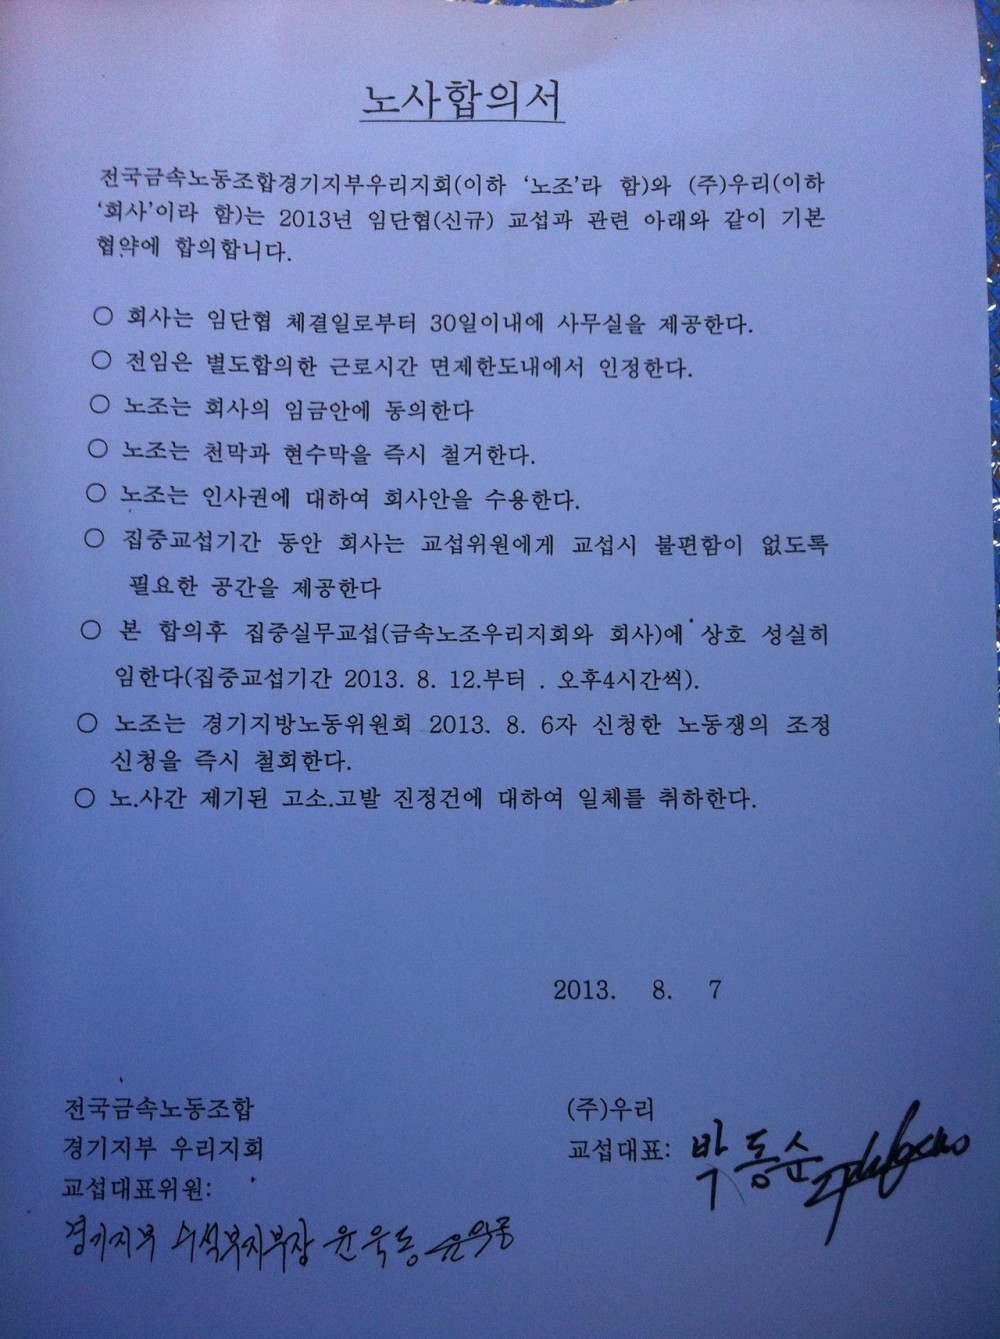 노사합의서
전국금속노동조합경기지부우리지회(이하 '노조'라 함)와 (주)우리(이하
'회사'이라 함)는 2013년 임단협(신규) 교섭과 관련 아래와 같이 기본
협약에 합의합니다.
○ 회사는 임단협 체결일로부터 30일이내에 사무실을 제공한다.
○ 전임은 별도합의한 근로시간 면제한도내에서 인정한다.
○ 노조는 회사의 임금안에 동의한다
○ 노조는 천막과 현수막을 즉시 철거한다.
○ 노조는 인사권에 대하여 회사안을 수용한다.
○ 집중교섭기간 동안 회사는 교섭위원에게 교섭시 불편함이 없도록
필요한 공간을 제공한다
○ 본 합의후 집중실무교섭(금속노조우리지회와 회사)에 상호 성실히
임한다(집중교섭기간 2013. 8. 12.부터 . 오후4시간씩).
○ 노조는 경기지방노동위원회 2013. 8. 6자 신청한 노동쟁의 조정
신청을 즉시 철회한다.
○ 노.사간 제기된 고소.고발 진정건에 대하여 일체를 취하한다.
2013. 8. 7
전국금속노동조합
경기지부 우리지회
교섭대표위원:
경기지부 수석부지부장 윤욱동
(주)우리
교섭대표: 박동순